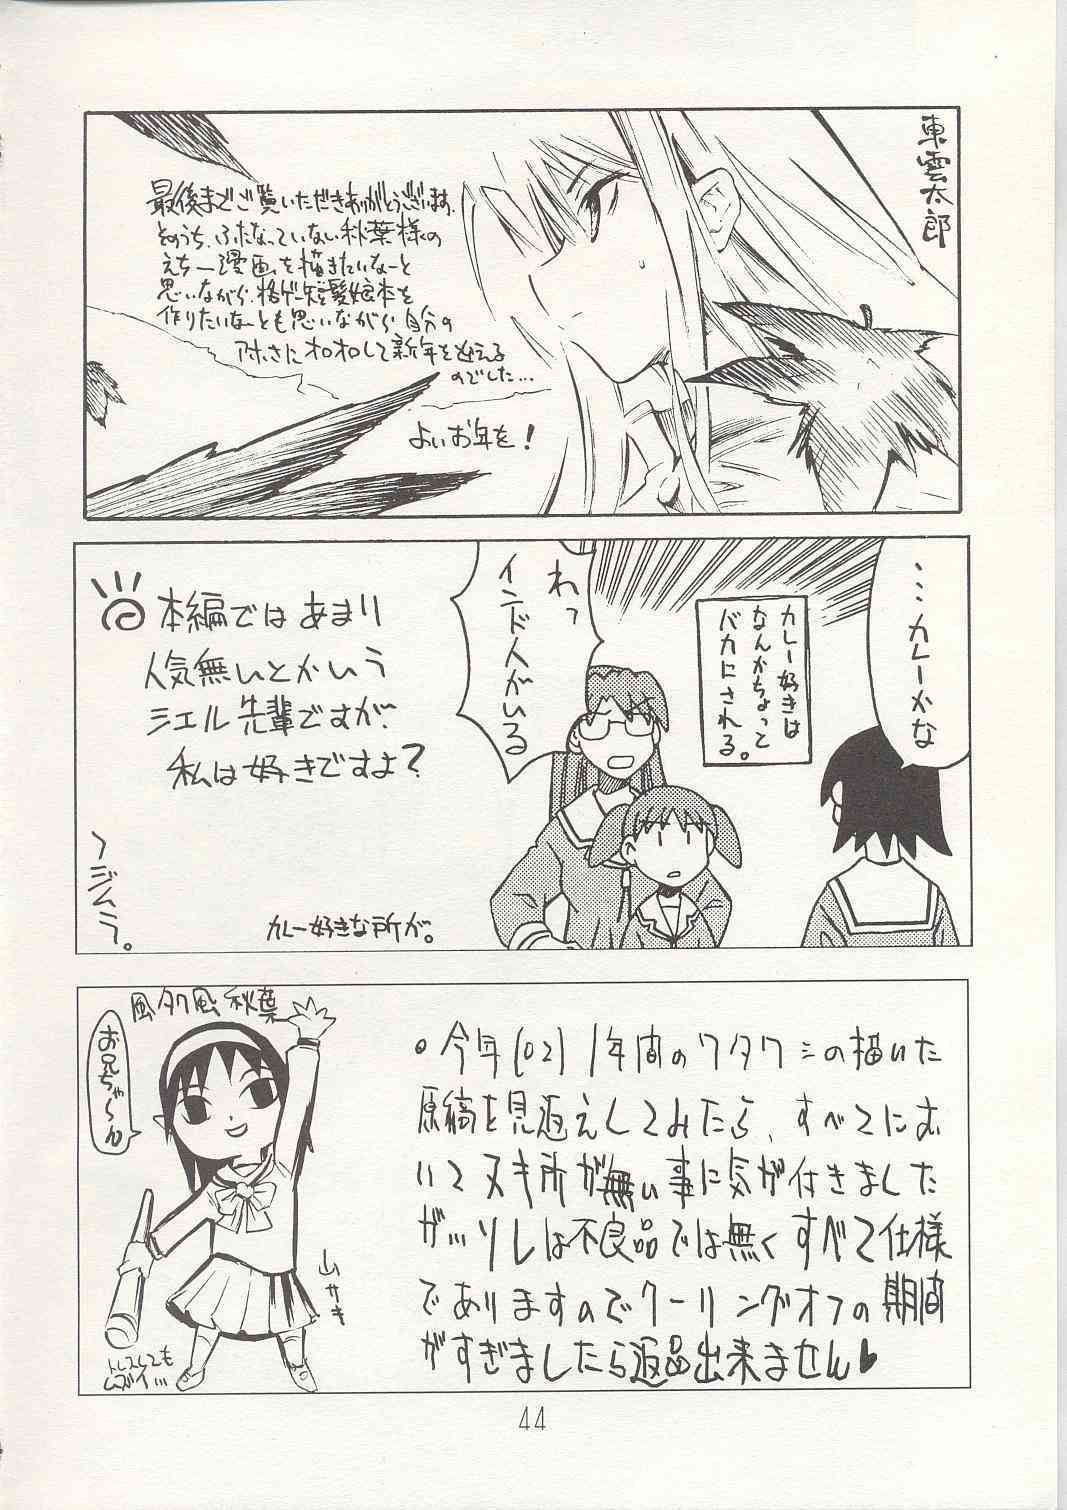 東雲太郎
最後までご覧いただきありがとうございます。
そのうち、ふたなっていない秋葉様の
えちー漫画を描きたいなーと
思いながら、格ゲー短髪娘本を
作りたいなーとも思いながら自分の
アホさにオロオロして新年を迎える
のでした…
よいお年を！
…カレーかな
カレー好きは
なんかちょって
バカにされる。
わっ
インド人がいる
本編ではあまり
人気無いとかいう
シエル先輩ですが、
私は好きですよ？
カレー好きな所が。
〜ジムラ。
風タク風秋葉
お兄ちゃ〜ん
山やき
トレスしても
ムズイ…
•今年(02)1年間のワタクシの描いた
原稿を見返えしてみたら、すべてにお
いてヌキ所が無い事に気が付きました
が…ソレは不良品では無くすべて仕様
でありますのでクーリングオフの期間
がすぎましたら返品出来ません♥
44